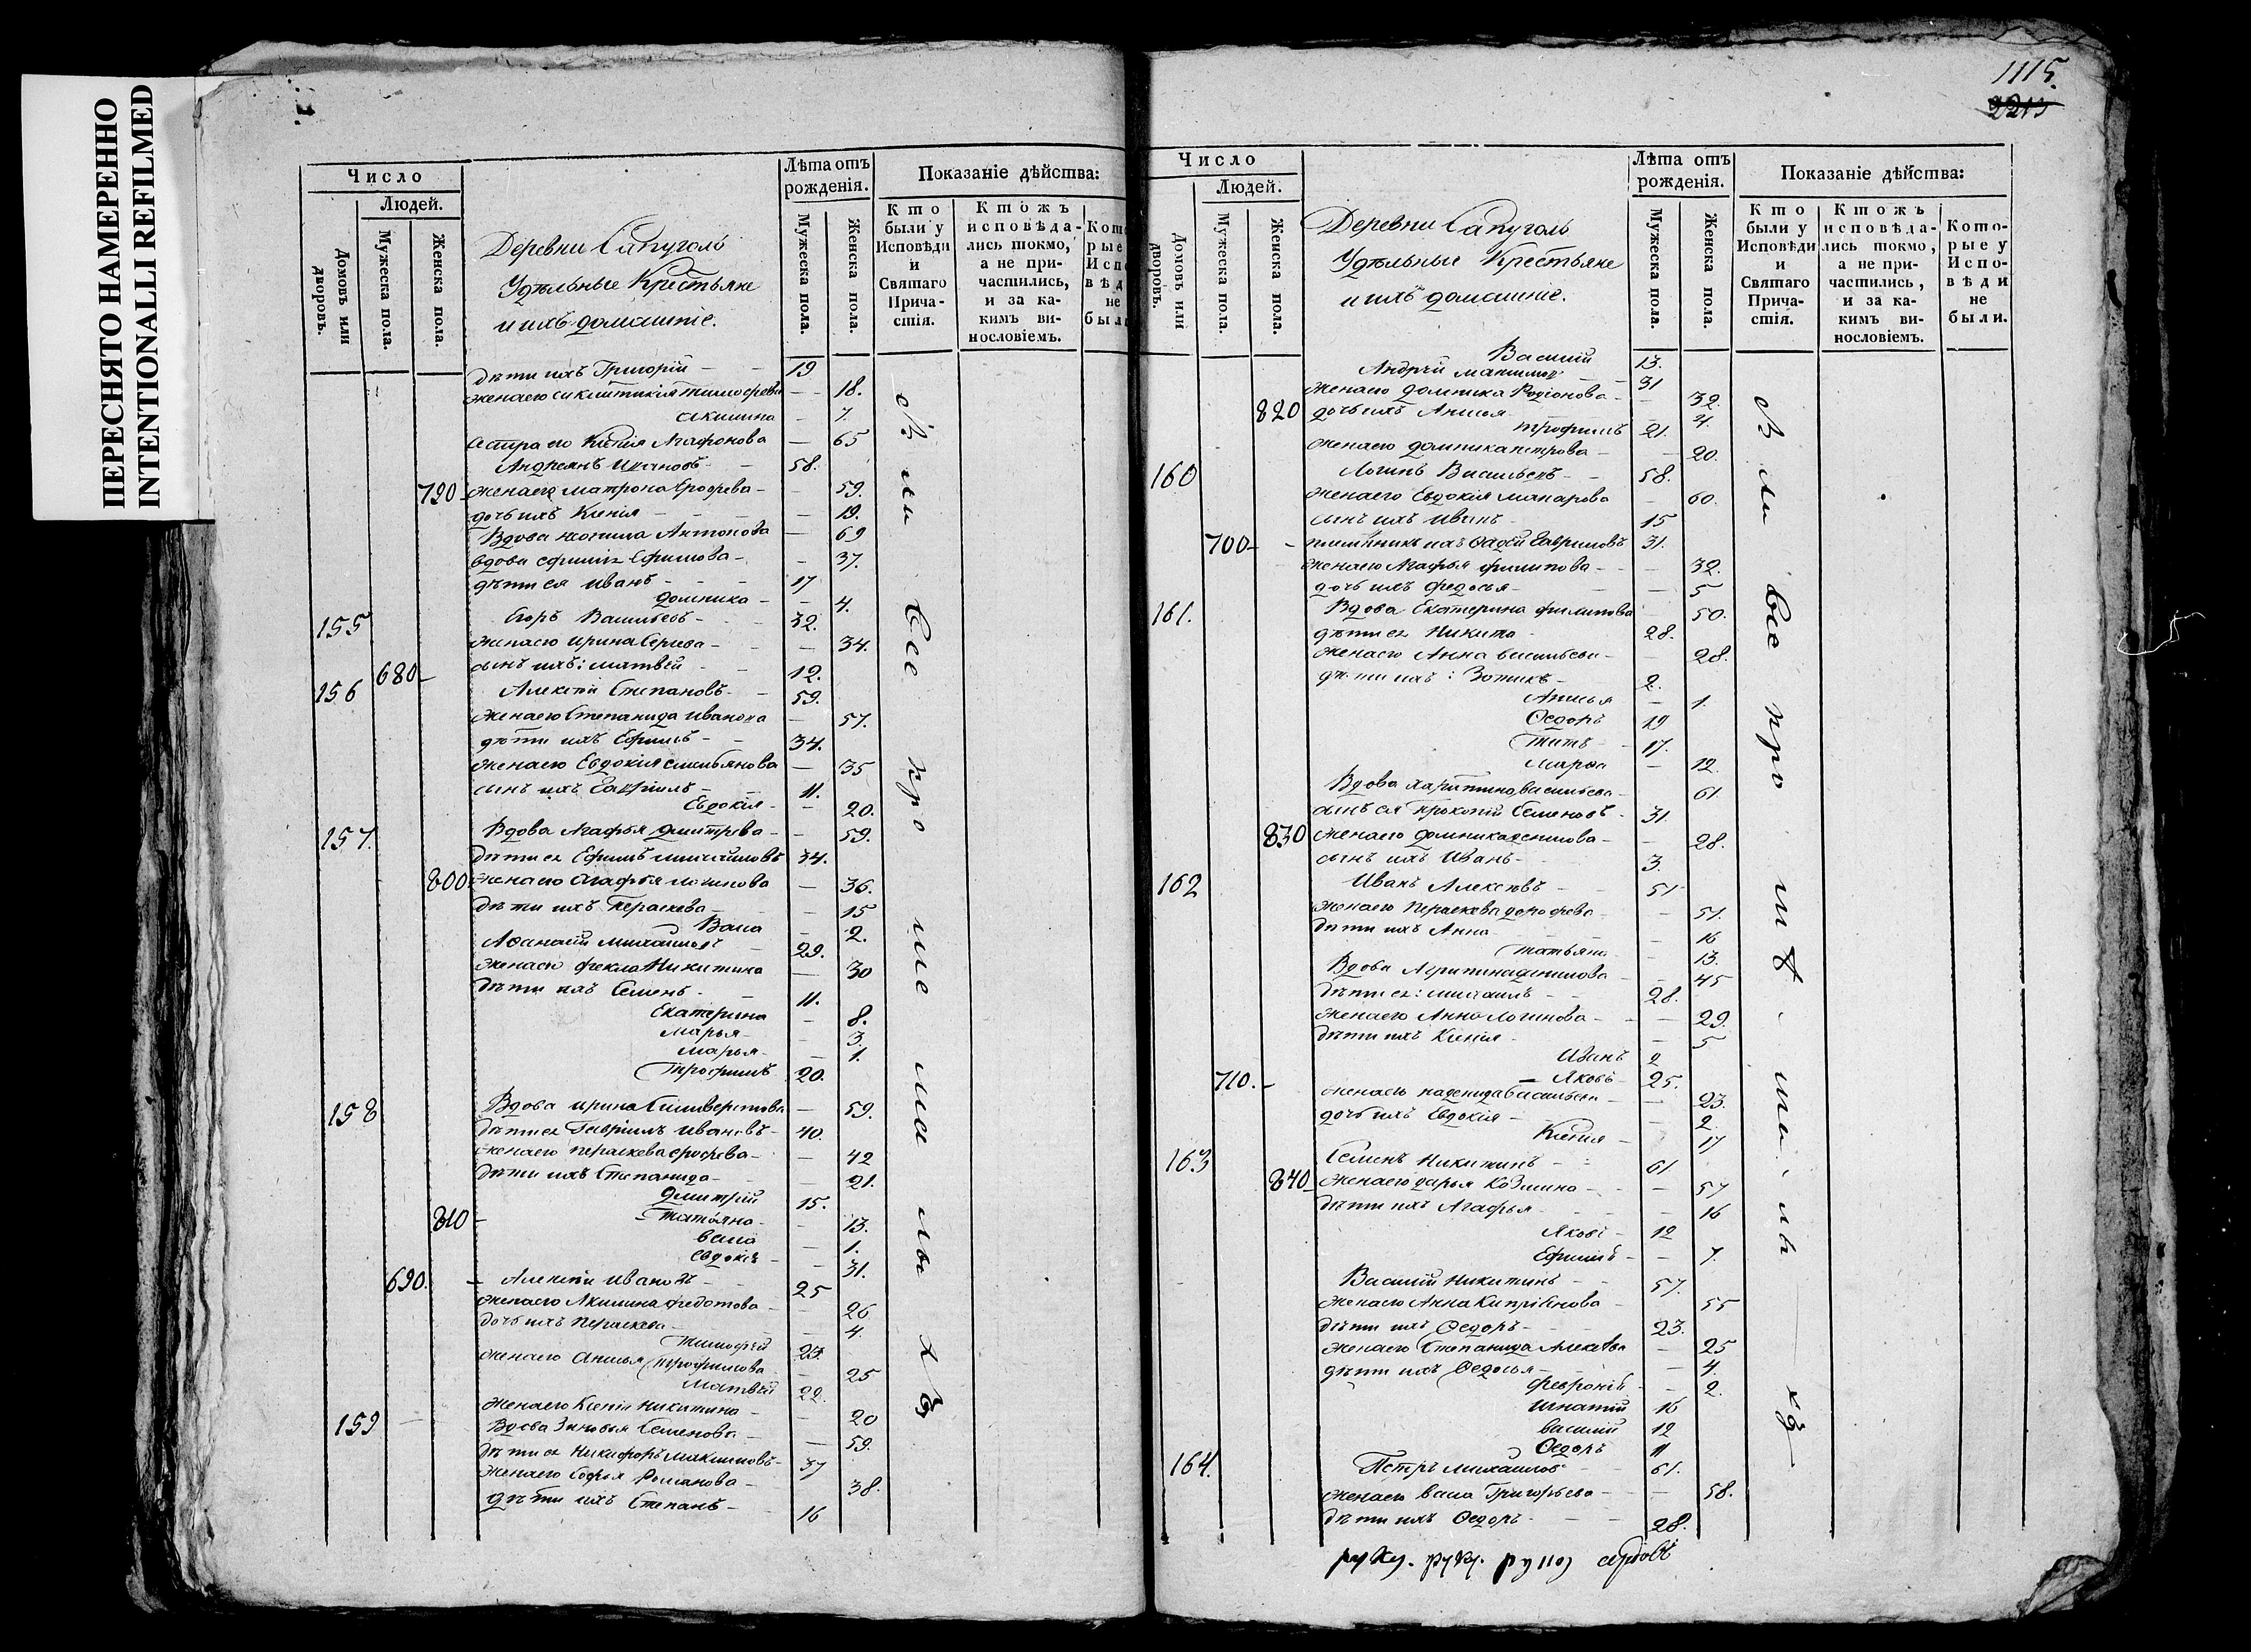 ПЕРЕСНЯТО НАМЕРЕННО
INTENTIONALLI REFILMED
Число
Людей.
Домовъ или дворовъ.
Мужеска пола.
Женска пола.
Деревни Сапуголь
Удѣльные Крестьяне
и ихъ домашніе.
Лѣта отъ рожденія.
Мужеска пола.
Женска пола.
Показаніе дѣйства:
Кто были у Исповѣди и Святаго Причастія.
Ктожъ исповѣдались токмо, а не причастились, и за какимъ винословіемъ.
дѣти ихъ Григорій 19
18.
Акилина 7.
сестра его Ксенія Агафонова 65
Андреянъ Ивановъ 58.
790 жена его Матрона Ерофеева 59.
дочь ихъ Ксенія 19.
Вдова Антонова 69
вдова Ефимова 37.
дѣти ея Иванъ 17
Домника 4.
155 Егоръ Васильевъ 32.
жена его Ирина 34.
680 сынъ ихъ: Матвей 12.
156 Алексѣй Степановъ 59.
жена его Степанида Иванова 57.
дѣти ихъ Ефимъ 34.
жена его Евдокія Емельянова 35
сынъ ихъ Гавріилъ 11.
Евдокія 20.
157. Вдова Агафья Дмитрева 59.
дѣти ея Ефимъ Михайловъ 34.
800 жена его Агафья Логинова 36.
дѣти ихъ Пераскева 15
Васа 2.
Афанасій Михайловъ 29.
жена его Фекла Никитина 30
дѣти ихъ Семенъ 11.
Екатерина 8.
Марья 3.
Марья 1.
Трофимъ 20.
158 Вдова Ирина Силиверстова 59.
дѣти ея Гавріилъ Ивановъ 40.
жена его Пераскева Ерофева 42
дѣти ихъ Степанида 21.
Дмитрій 15.
810 Татьяна 13.
Васа 1.
Евдокія 31.
690. Алексѣй Ивановъ 25
жена его Акилина Федотова 26
дочь ихъ Пераскева 4.
Тимофей 23.
жена его Анисья Трофимова 25
Матвѣй 22.
жена его Ксенія Никитина 20
159 Вдова Зиновья Семенова 59.
дѣти ея Никифоръ Максимовъ 37
жена его Софья Романова 38.
дѣти ихъ Степанъ 16
1115.
2213
Число
Людей.
Домовъ или дворовъ.
Мужеска пола.
Женска пола.
Деревни Сапуголь
Удѣльные Крестьяне
и ихъ домашніе.
Лѣта отъ рожденія.
Мужеска пола.
Женска пола.
Показаніе дѣйства:
Кто были у Исповѣди и Святаго Причастія.
Ктожъ исповѣдались токмо, а не причастились, и за какимъ винословіемъ.
Которые у Исповѣди не были.
Василій 13.
Андрей 31
жена его Домника Родіонова 32.
820 дочь ихъ Анисья 4.
Трофимъ 21.
жена его Домника Петрова 20.
160 Логинъ Васильевъ 58.
жена его Евдокія Макарова 60.
сынъ ихъ Иванъ 15
700 племянникъ ихъ Фадѣй Гавриловъ 31.
жена его Агафья Филипова 32.
дочь ихъ Федосья 5
161. Вдова Екатерина Филипова 50.
дѣти ея Никита 28.
жена его Анна Васильева 28.
дѣти ихъ: Зотикъ 2.
Анисья 1.
Ѳедоръ 19
Титъ 17.
Марѳа 12.
Вдова Харитина Васильева 61.
сынъ ея Прокопій Семеновъ 31.
830 жена его Домника Денисова 28.
сынъ ихъ Иванъ 3.
162 Иванъ Алексѣевъ 51
жена его Пераскева Дорофева 51.
дѣти ихъ Анна 16
Татьяна 13.
Вдова Агрипина Денисова 45
дѣти ея: Михаилъ 28.
жена его Анна Логинова 29.
дѣти ихъ Ксенія 5
Иванъ 2
710. Яковъ 25.
жена его Надежда Васильева 23.
дочь ихъ Евдокія 2.
Ксенія 17
163 Семенъ Никитинъ 61.
840 жена его Дарья Козмина 57
дѣти ихъ Агафья 16
Яковъ 12
7.
Василій Никитинъ 57.
жена его Анна Кипріянова 55
дѣти ихъ Ѳедоръ 23.
жена его Степанида Алексѣева 25
дѣти ихъ Ѳедосья 4.
Февронія 2.
Игнатій 16
Василій 12
Ѳедоръ 11
164. Петръ Михайловъ 61.
жена его Васа Григорьева 58.
дѣти ихъ Ѳедоръ 28.